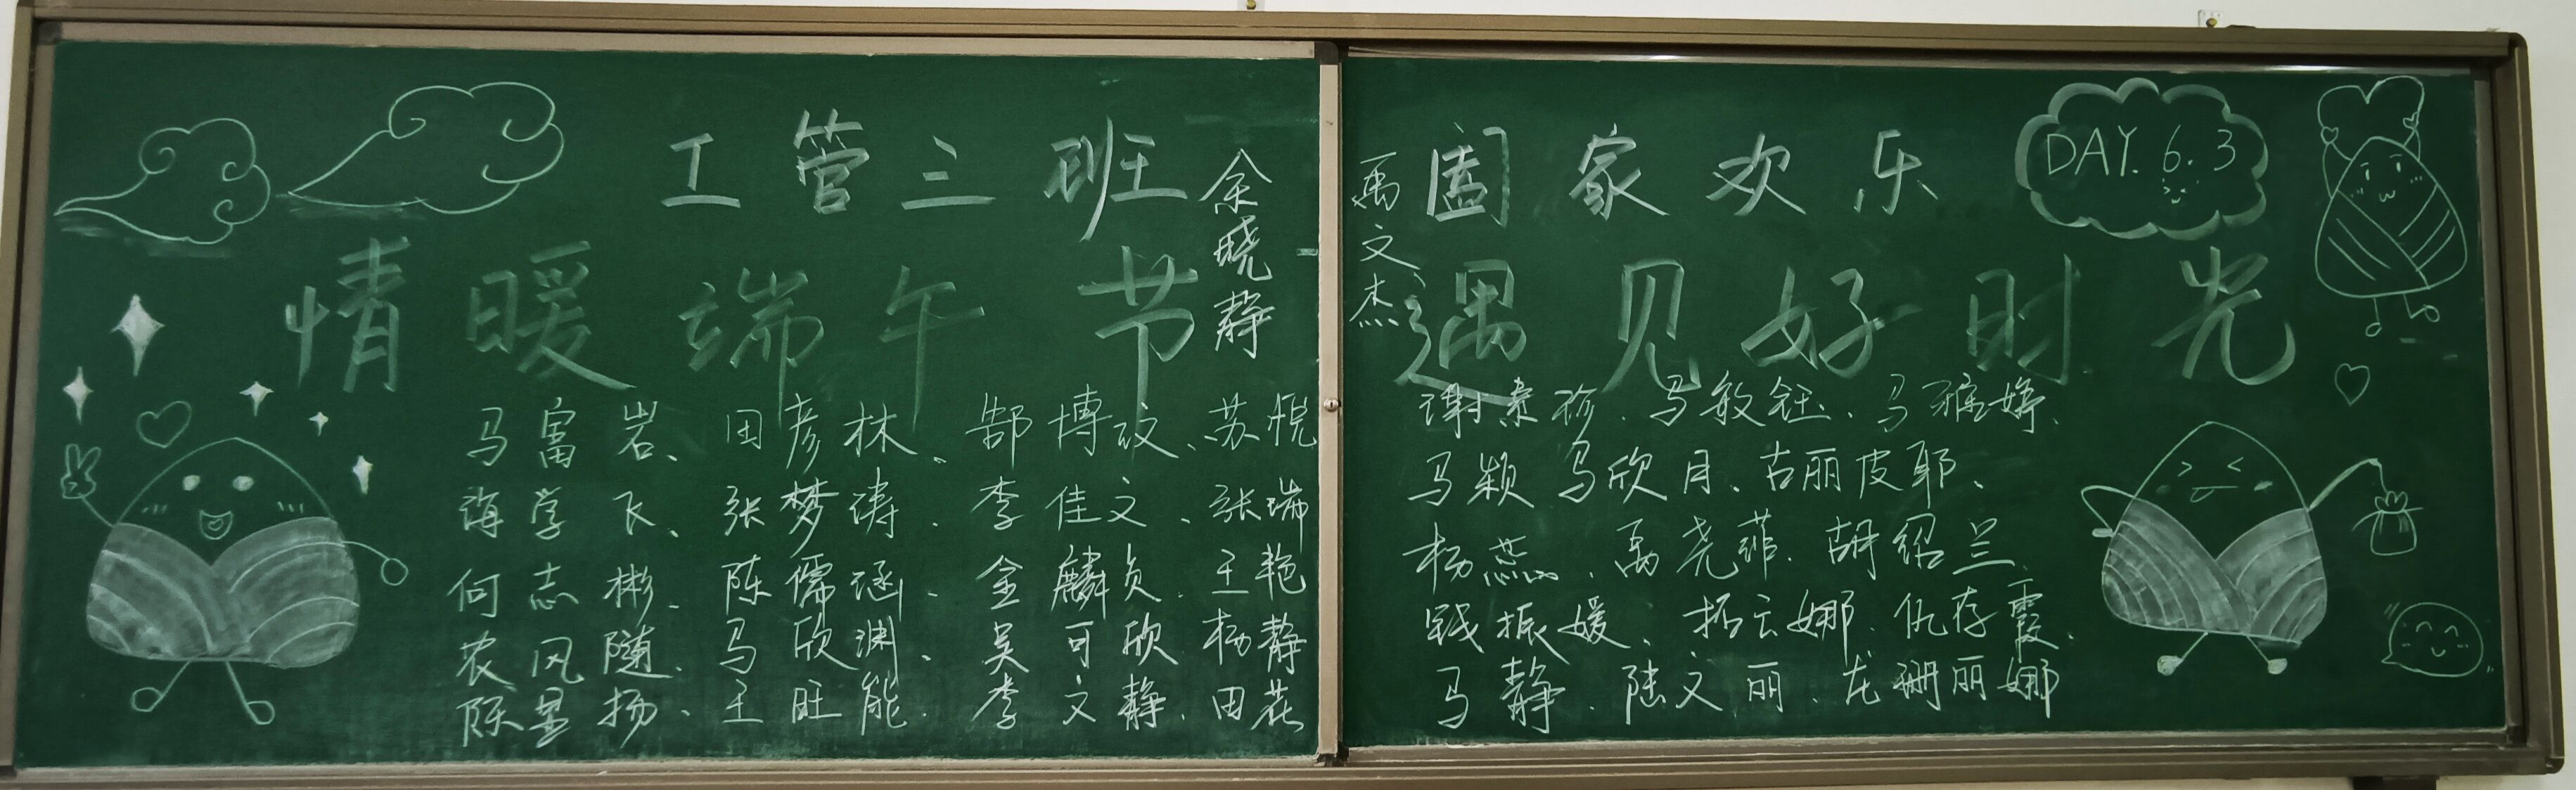 工管三班
余晓静
情暖端午节
马富岩、田彦林、郜博文、苏悦
海学飞、张梦涛、李佳文、张瑞
何志彬、陈儒涵、金麟贞、王艳
农风随、马欣渊、吴可欣 杨静
陈星扬、王旺能、李文静、田花
禹文杰
阖家欢乐
DAY. 6.3
遇见好时光
谢素珍、马敏钰、马雅婷、
马颖 马欣月、古丽皮耶、
杨燕、禹尧菲、胡绍兰、
钱振媛、拓云娜、仇存霞、
马静、陆文丽、龙珊丽娜